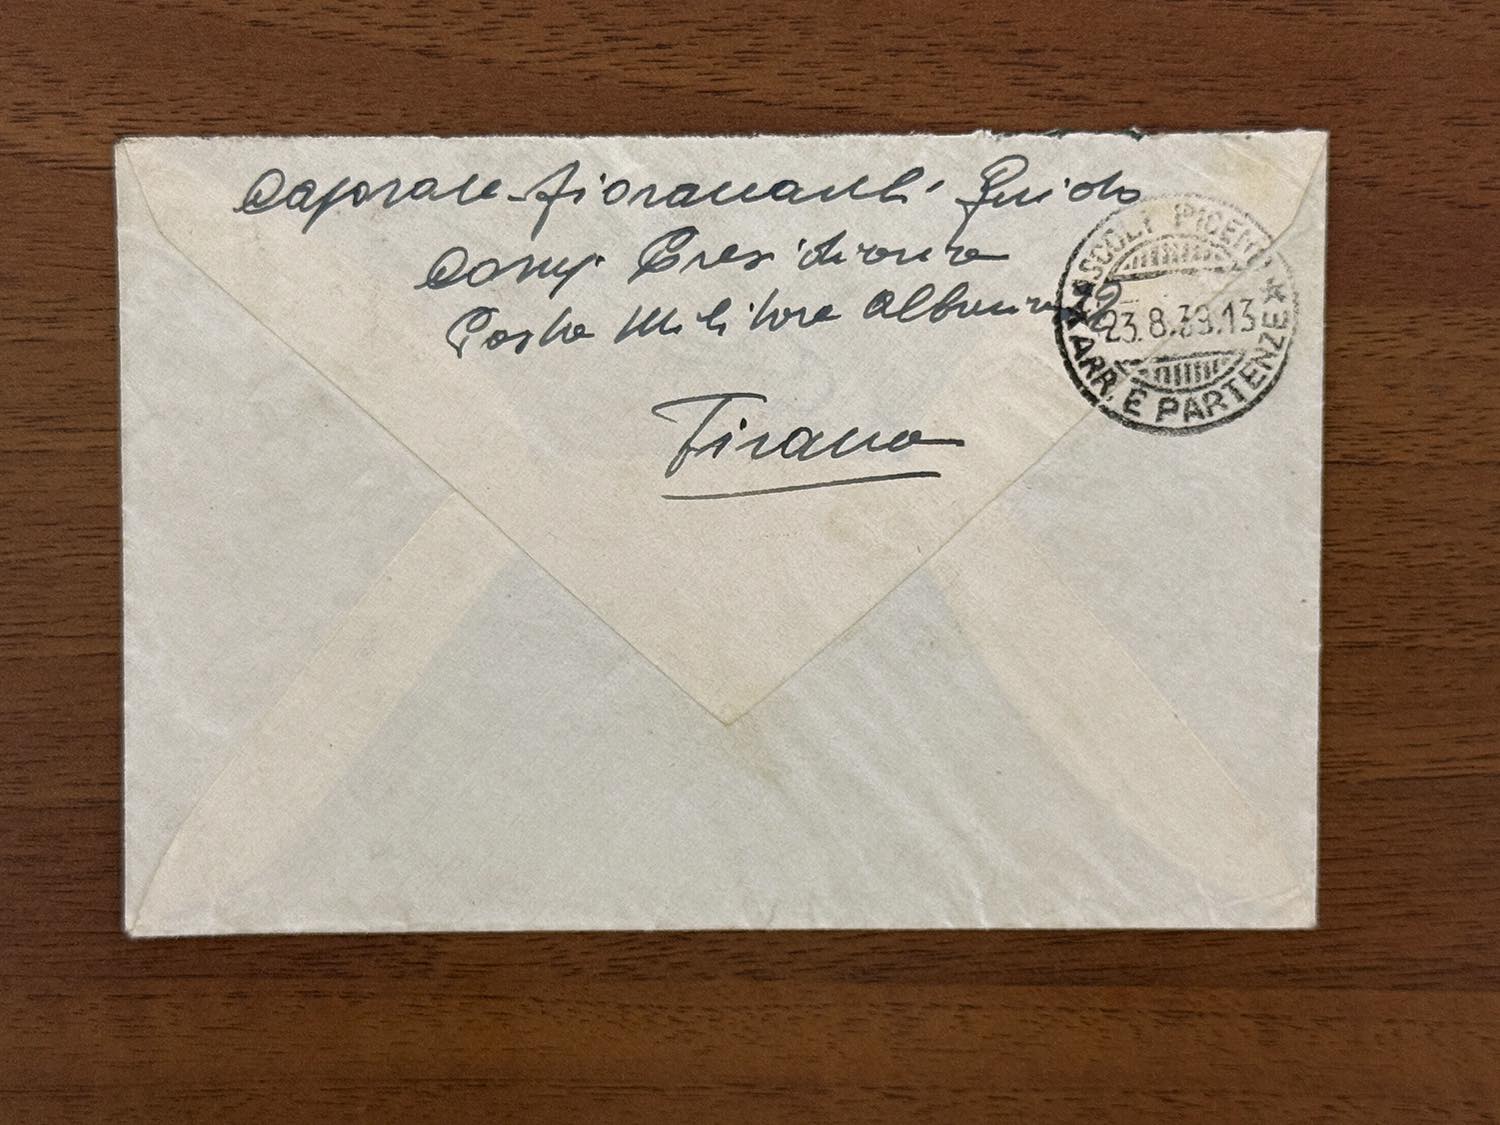 Caporale Fioravanti Guido
Comp. Presidiaria
Posta Militare Albania 12
Tirana
ASCOLI PICENO
23.8.39.13
ARR. E PARTENZE